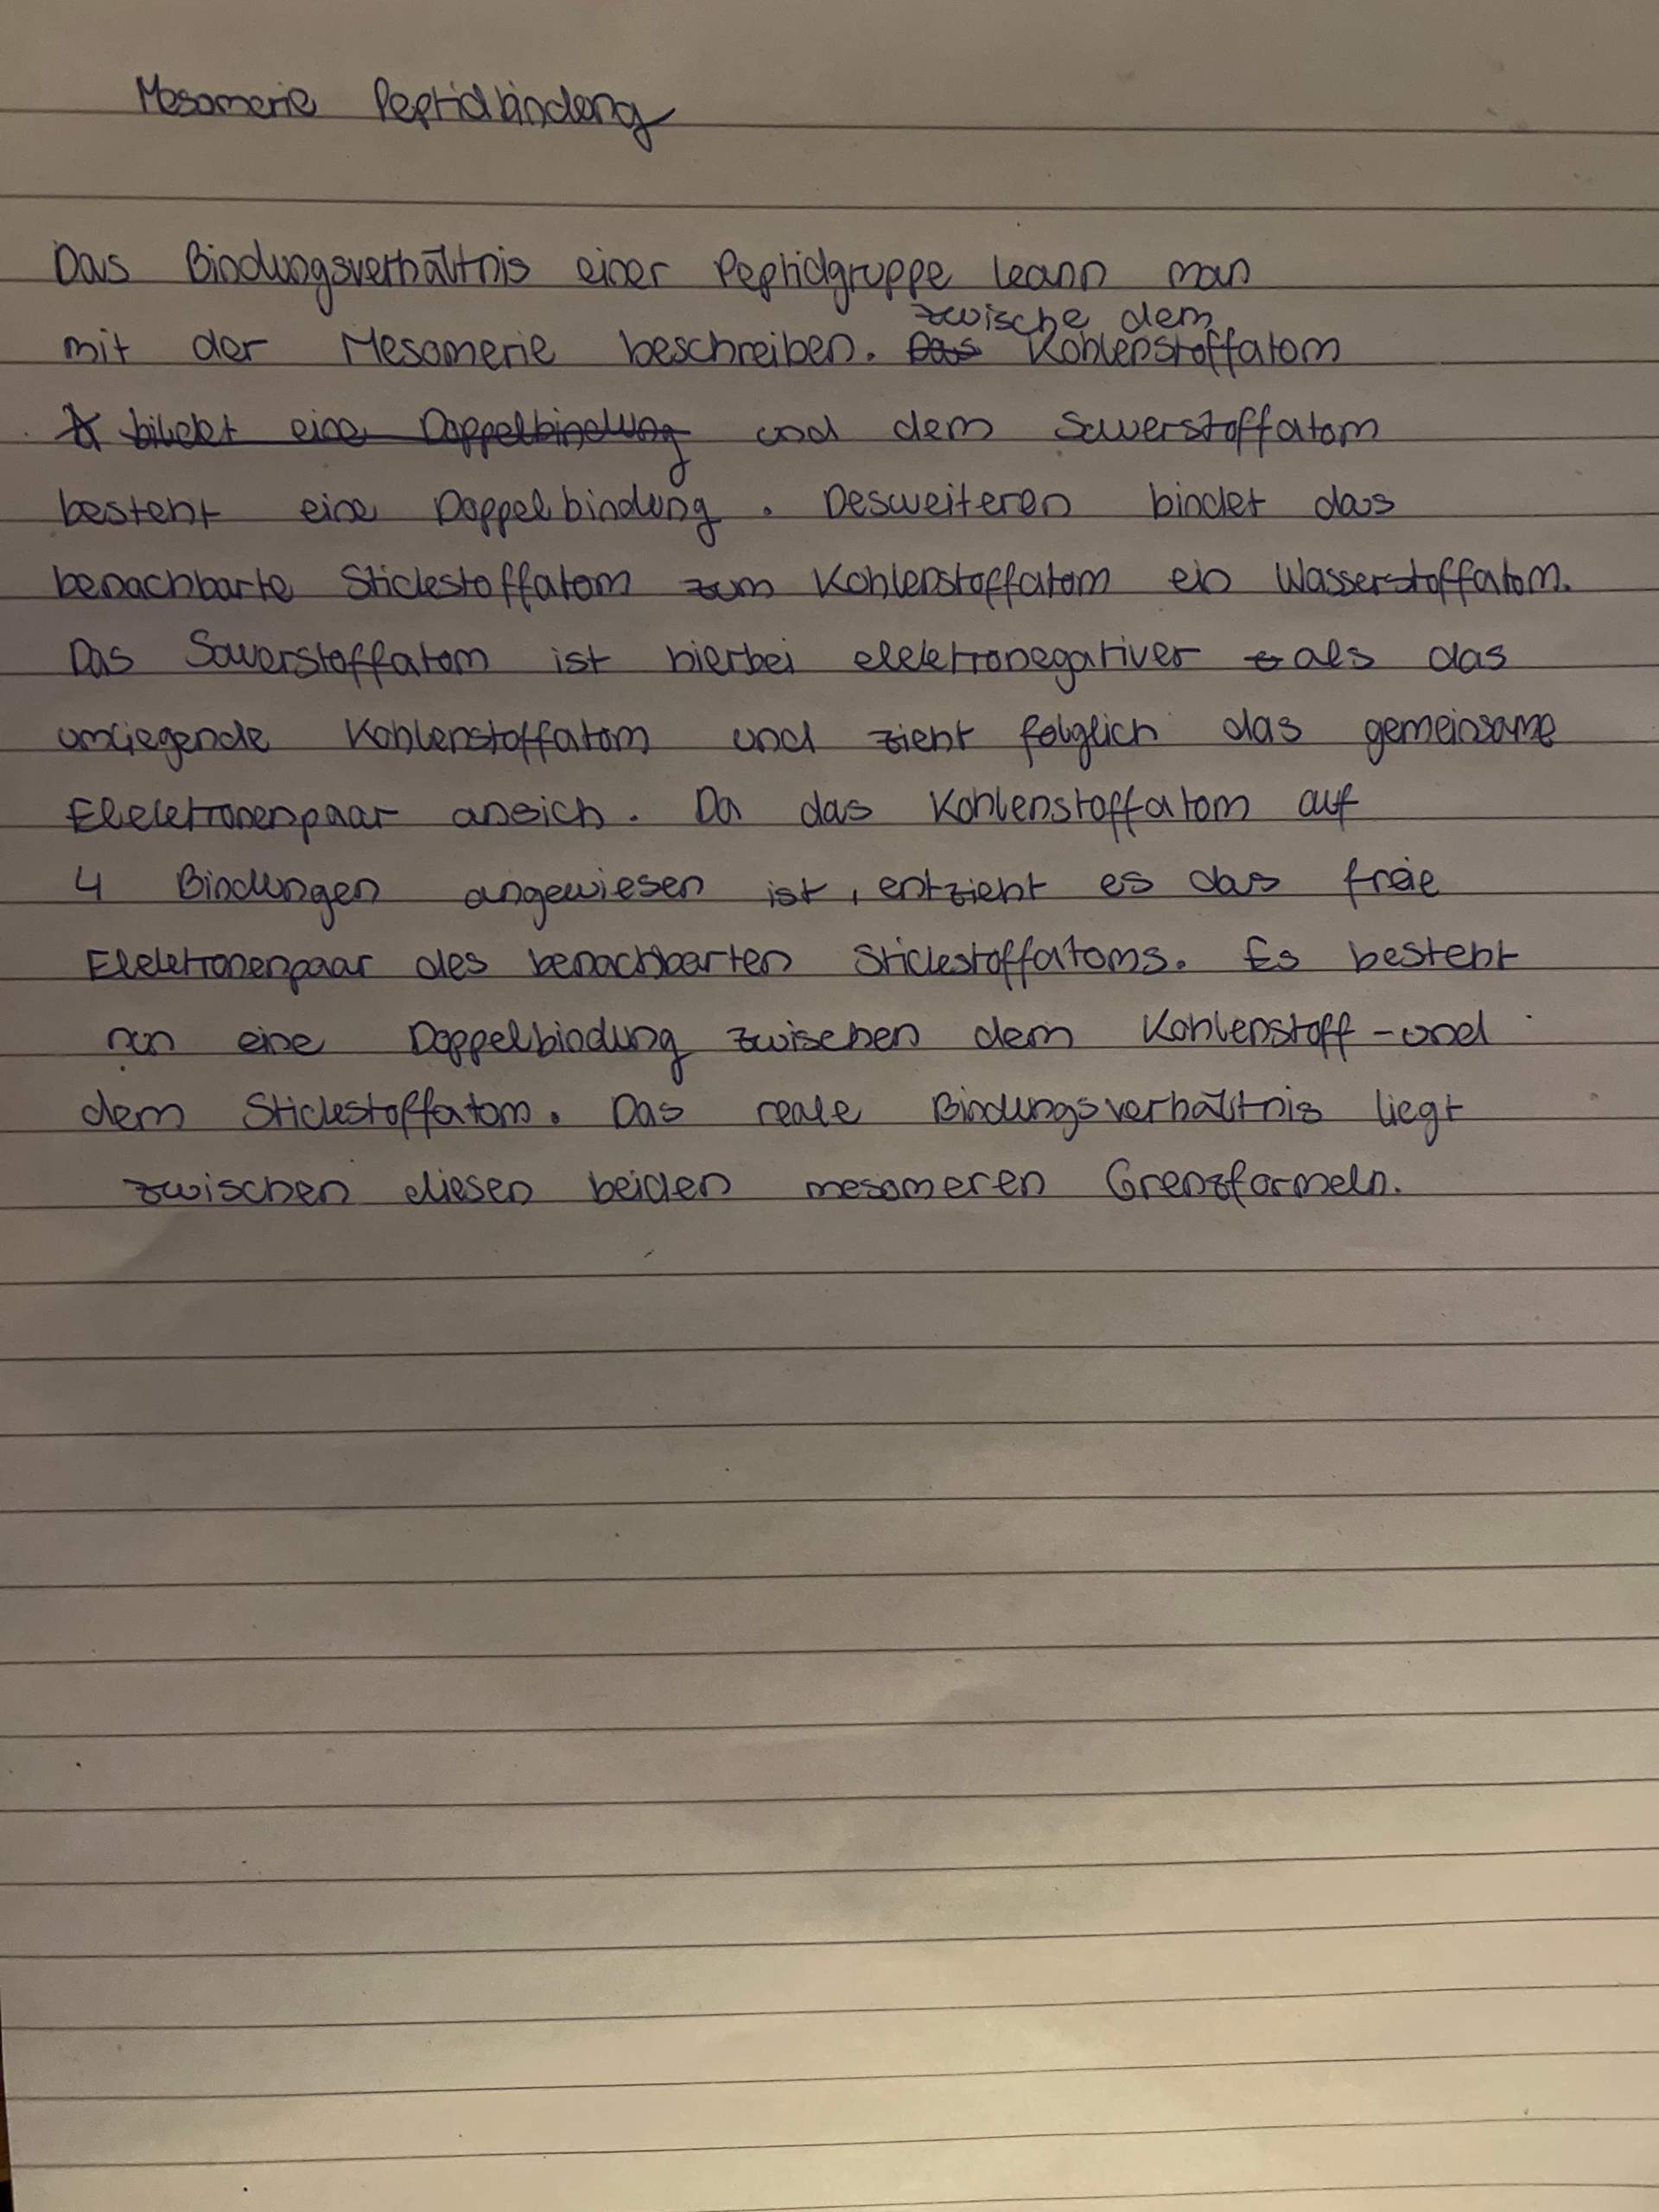 Mesomerie Peptidbindung
Das Bindungsverhältnis einer Peptidgruppe kann man
zwische dem
mit der Mesomerie beschreiben. Das Kohlenstoffatom
bildet eine Doppelbindung und dem Sauerstoffatom
besteht eine Doppelbindung. Desweiteren bindet das
benachbarte Stickstoffatom zum Kohlenstoffatom ein Wasserstoffatom.
Das Sauerstoffatom ist hierbei elektronegativer als das
umliegende Kohlenstoffatom und zieht folglich das gemeinsame
Elektronenpaar ansich. Da das Kohlenstoffatom auf
4 Bindungen angewiesen ist, entzieht es das freie
Elektronenpaar des benachbarten Stickstoffatoms. Es besteht
nun eine Doppelbindung zwischen dem Kohlenstoff-und
dem Stickstoffatom. Das reale Bindungsverhältnis liegt
zwischen diesen beiden mesomeren Grenzformeln.